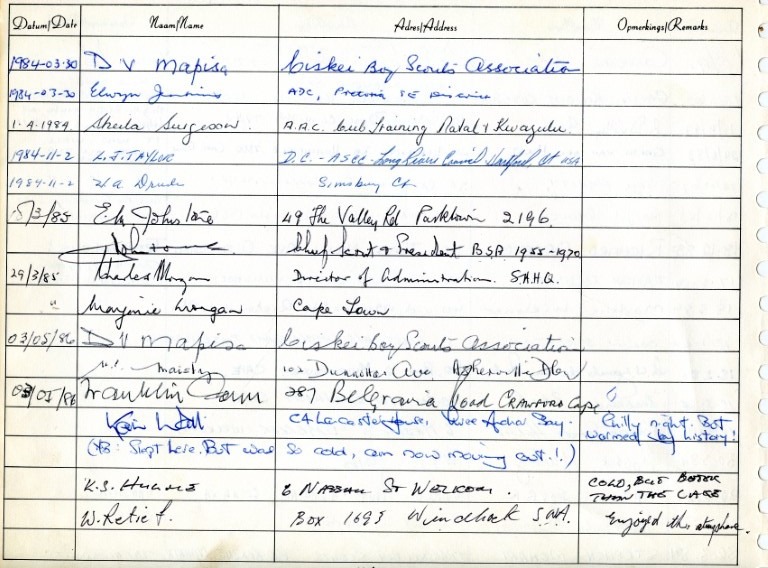 Datum/Date Naam/Name Adres/Address Opmerkings/Remarks
1984-03-30 D V Mapisa Ciskei Boy Scouts Association
1984-03-30 Elwyn Jenkins ADC, Pretoria SE District
1.4.1984. Sheila Surgeson. A.A.C. Cub Training Natal & Kwazulu.
1984-11-2 L.J. TAYLOR D.C. - ASCC - Long Rivers Council Hartford, Ct USA
1984-11-2 Simsbury Ct
5/3/85 Johnstone 49 The Valley Rd Parktown 2196.
Chief Scout & President BSA 1955-1970
29/3/85 Charles Morgan Director of Administration. S.H.H.Q.
" Marjorie Morgan Cape Town
03/05/86 D V Mapisa Ciskei Boy Scouts Association
102 Ave
03/05/86 Franklin 287 Belgravia Road CRAWFORD Cape
Leicester House, Bay. Chilly night. But
warmed by history!
(NB: Slept here. But was so cold, am now moving out!!)
K.S. 6 NASSAU St WELKOM. COLD, BUT BETTER
THAN THE CAGE
W. Retief. Box 1693 Windhoek S.W.A. Enjoyed the atmosphere.